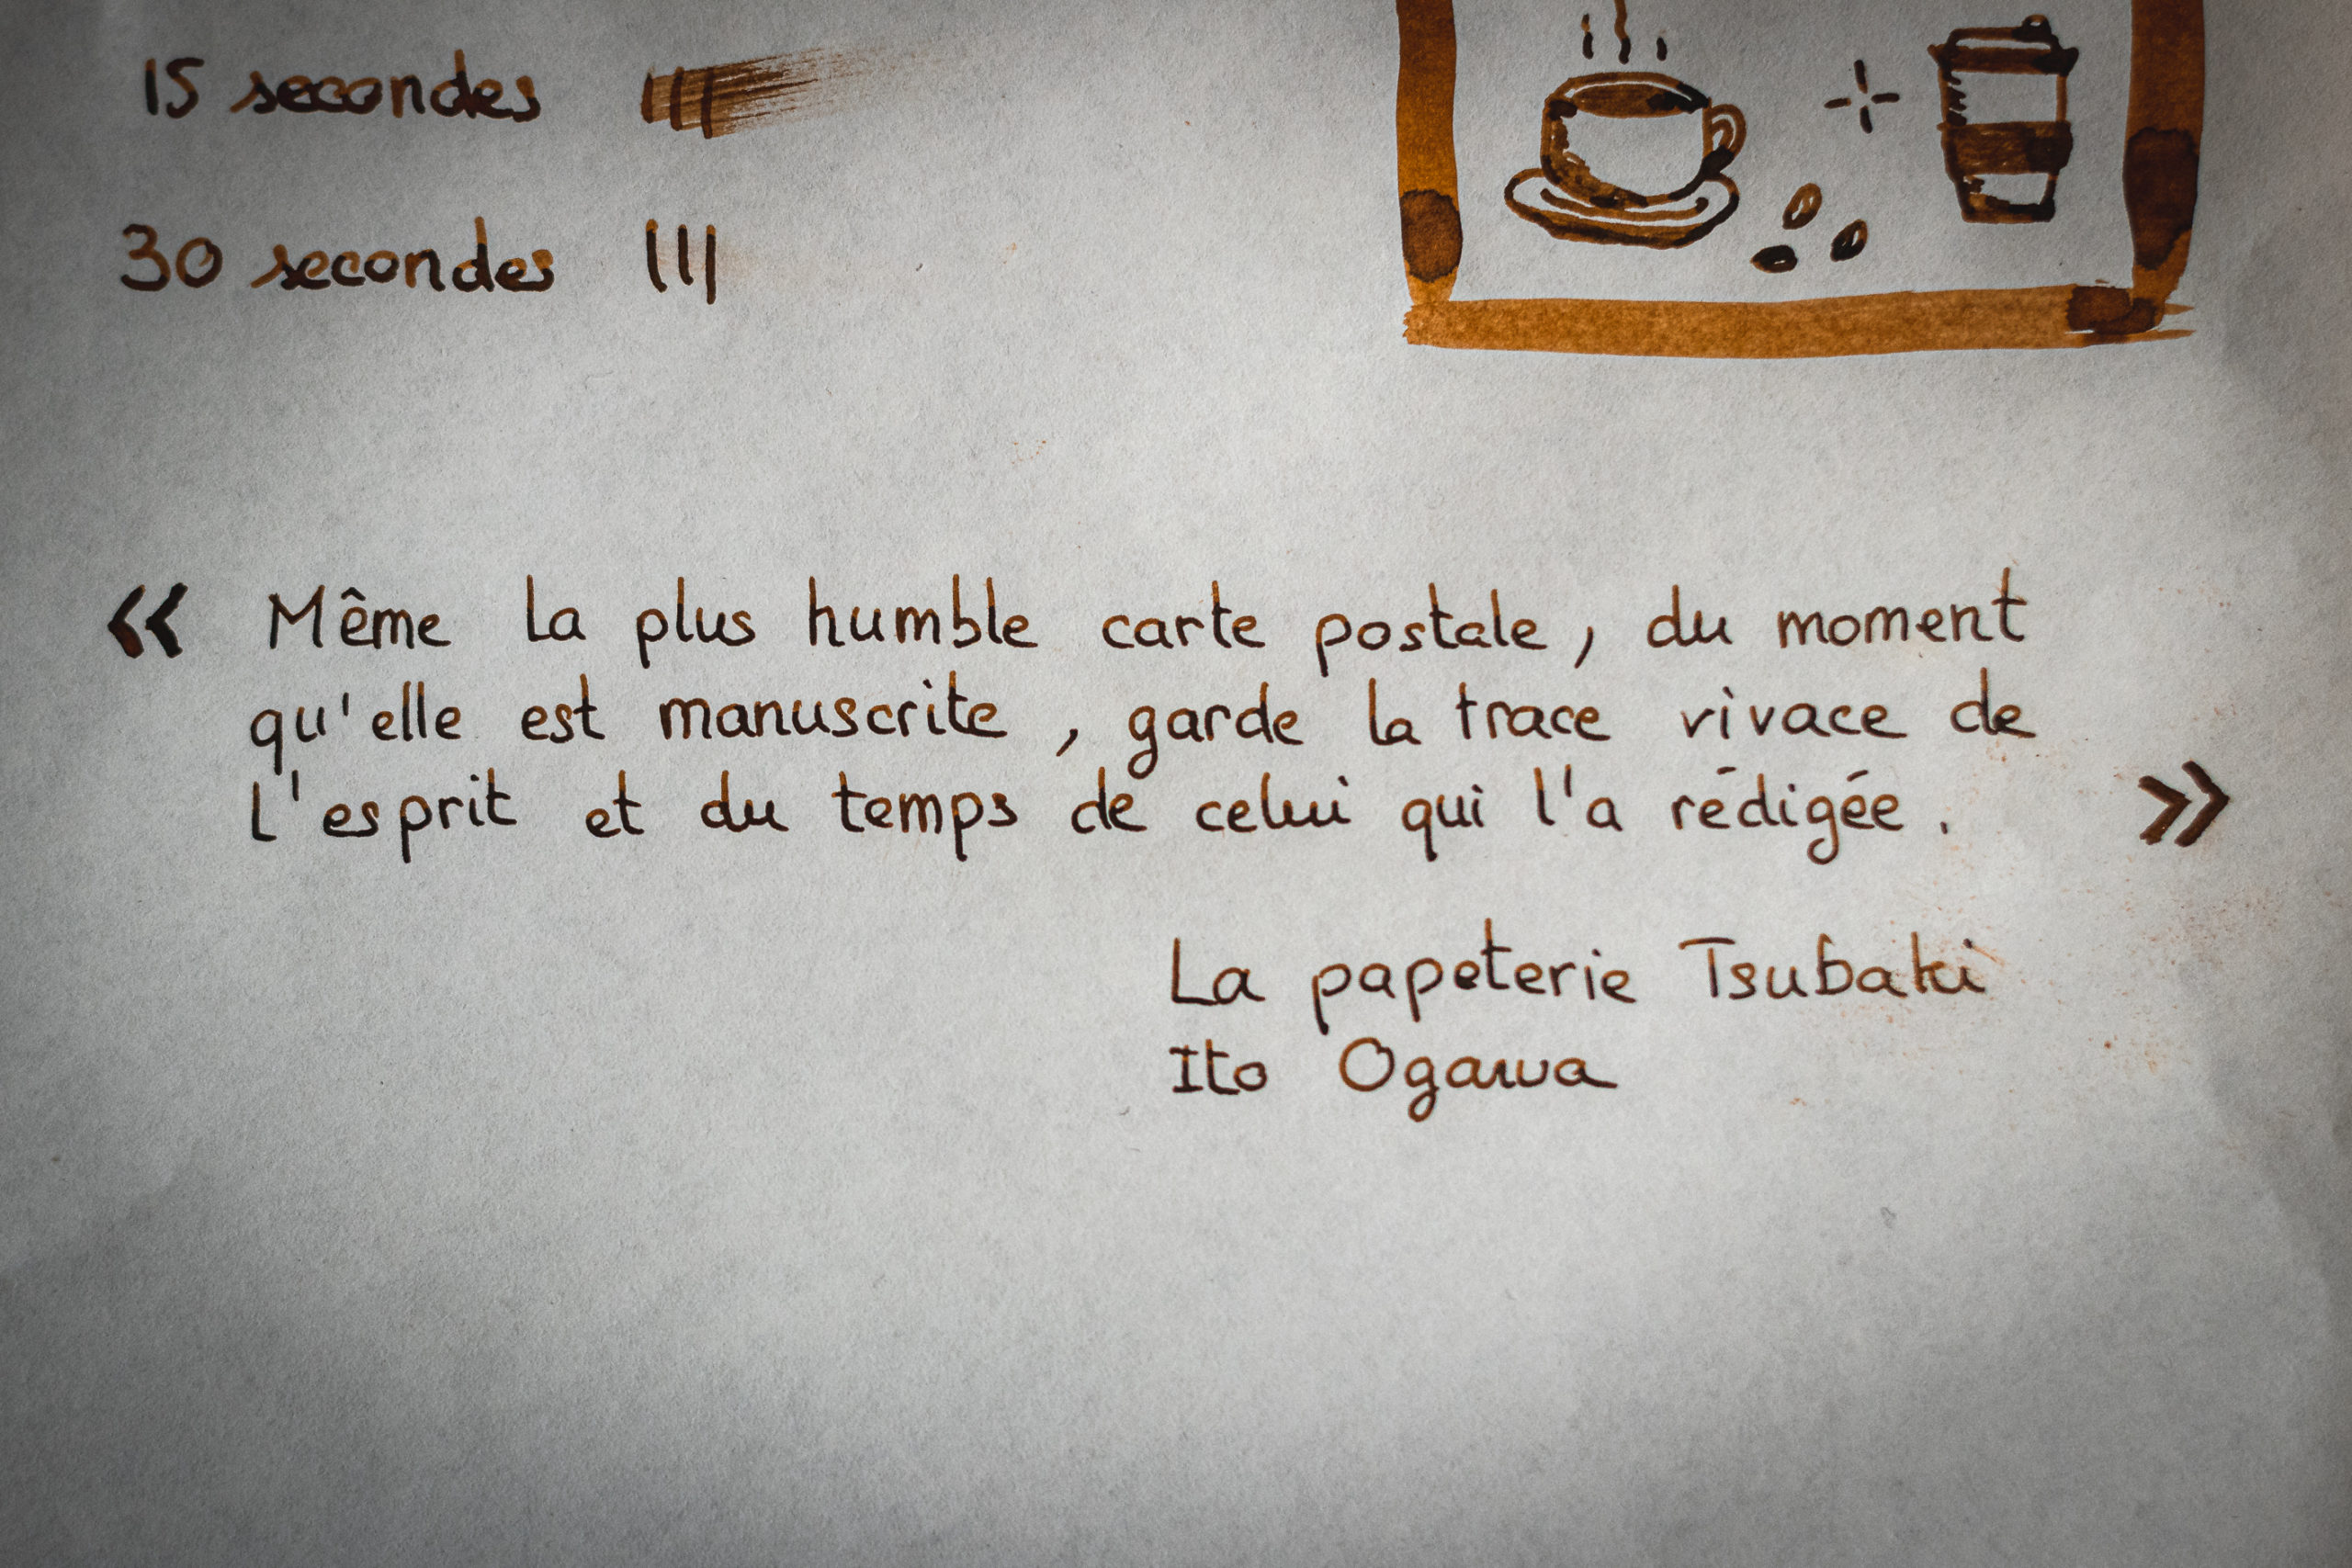 15 secondes
30 secondes
« Même la plus humble carte postale, du moment
qu'elle est manuscrite, garde la trace vivace de
l'esprit et du temps de celui qui l'a rédigée. »
La papeterie Tsubaki
Ito Ogawa